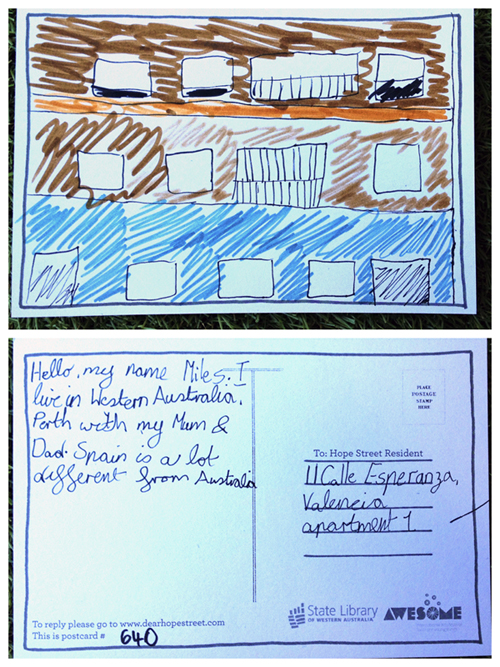 Hello, my name Miles. I
live in Western Australia,
Perth with my Mum &
Dad. Spain is a lot
different from Australia
PLACE
POSTAGE
STAMP
HERE
To: Hope Street Resident
11 Calle Esperanza,
Valencia
apartment 1
To reply please go to www.dearhopestreet.com
This is postcard # 640
State Library
OF WESTERN AUSTRALIA
AWESOME